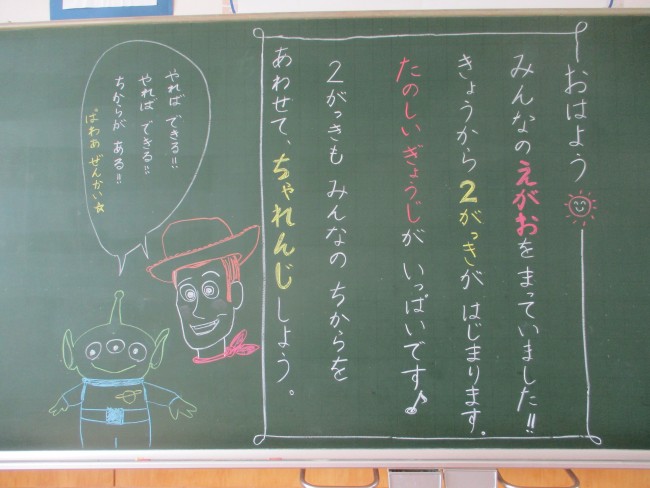 おはよう
みんなの えがおを まっていました!!
きょうから 2がっきが はじまります。
たのしいぎょうじが いっぱいです♪
2がっきも みんなの ちからを
あわせて、ちゃれんじしよう。
やれば できる!!
やれば できる!!
ちからが ある!!
ぱわあ ぜんかい☆